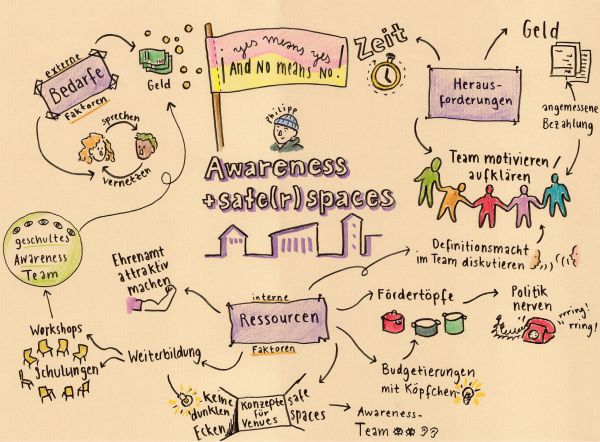 externe
Bedarfe
Faktoren
Geld
sprechen
vernetzen
yes means yes
And No means No!
Philipp
Awareness
+safe(r)spaces
Zeit
Heraus-
forderungen
Geld
angemessene
Bezahlung
Team motivieren/
aufklären
Definitionsmacht
im Team diskutieren
geschultes
Awareness
Team
Ehrenamt
attraktiv
machen
interne
Ressourcen
Faktoren
Fördertöpfe
Politik
nerven
rring!
rring!
Workshops
Schulungen
Weiterbildung
Budgetierungen
mit Köpfchen
keine
dunklen
Ecken
Konzepte
für
Venues
safe
spaces
Awareness-
Team